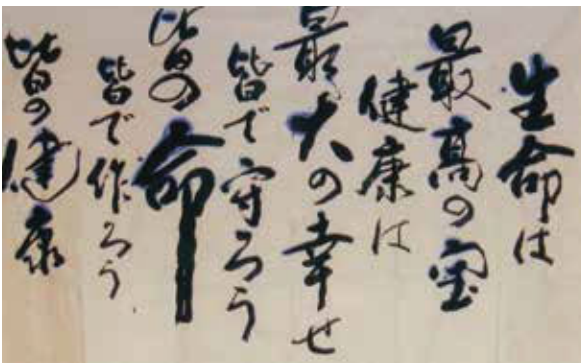 生命は
最高の宝
健康は
最大の幸せ
皆で守ろう
皆の命
皆で作ろう
皆の健康